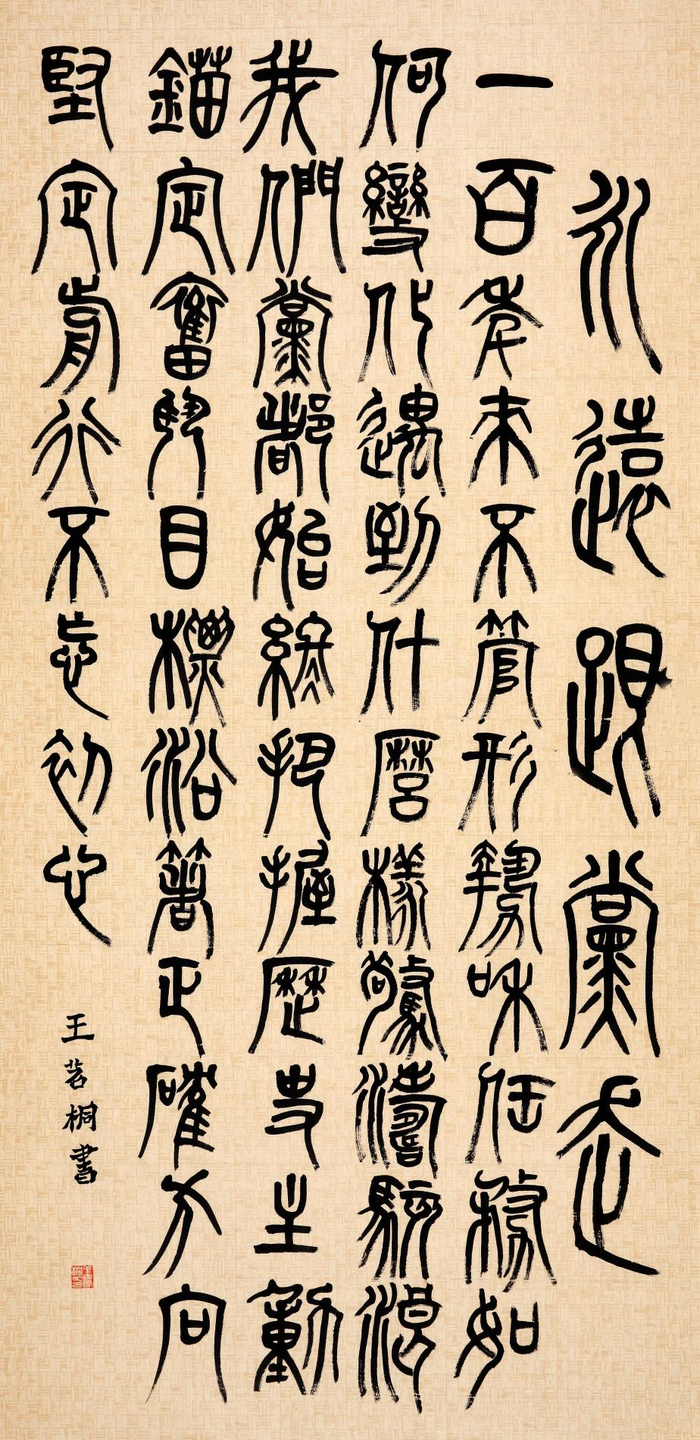 永遠跟黨走
一百年來不管形勢和任務如
何變化遇到什麼樣驚濤駭浪
我們黨都始終把握歷史主動
錨定奮鬥目標沿著正確方向
堅定前行不忘初心
王茗桐書